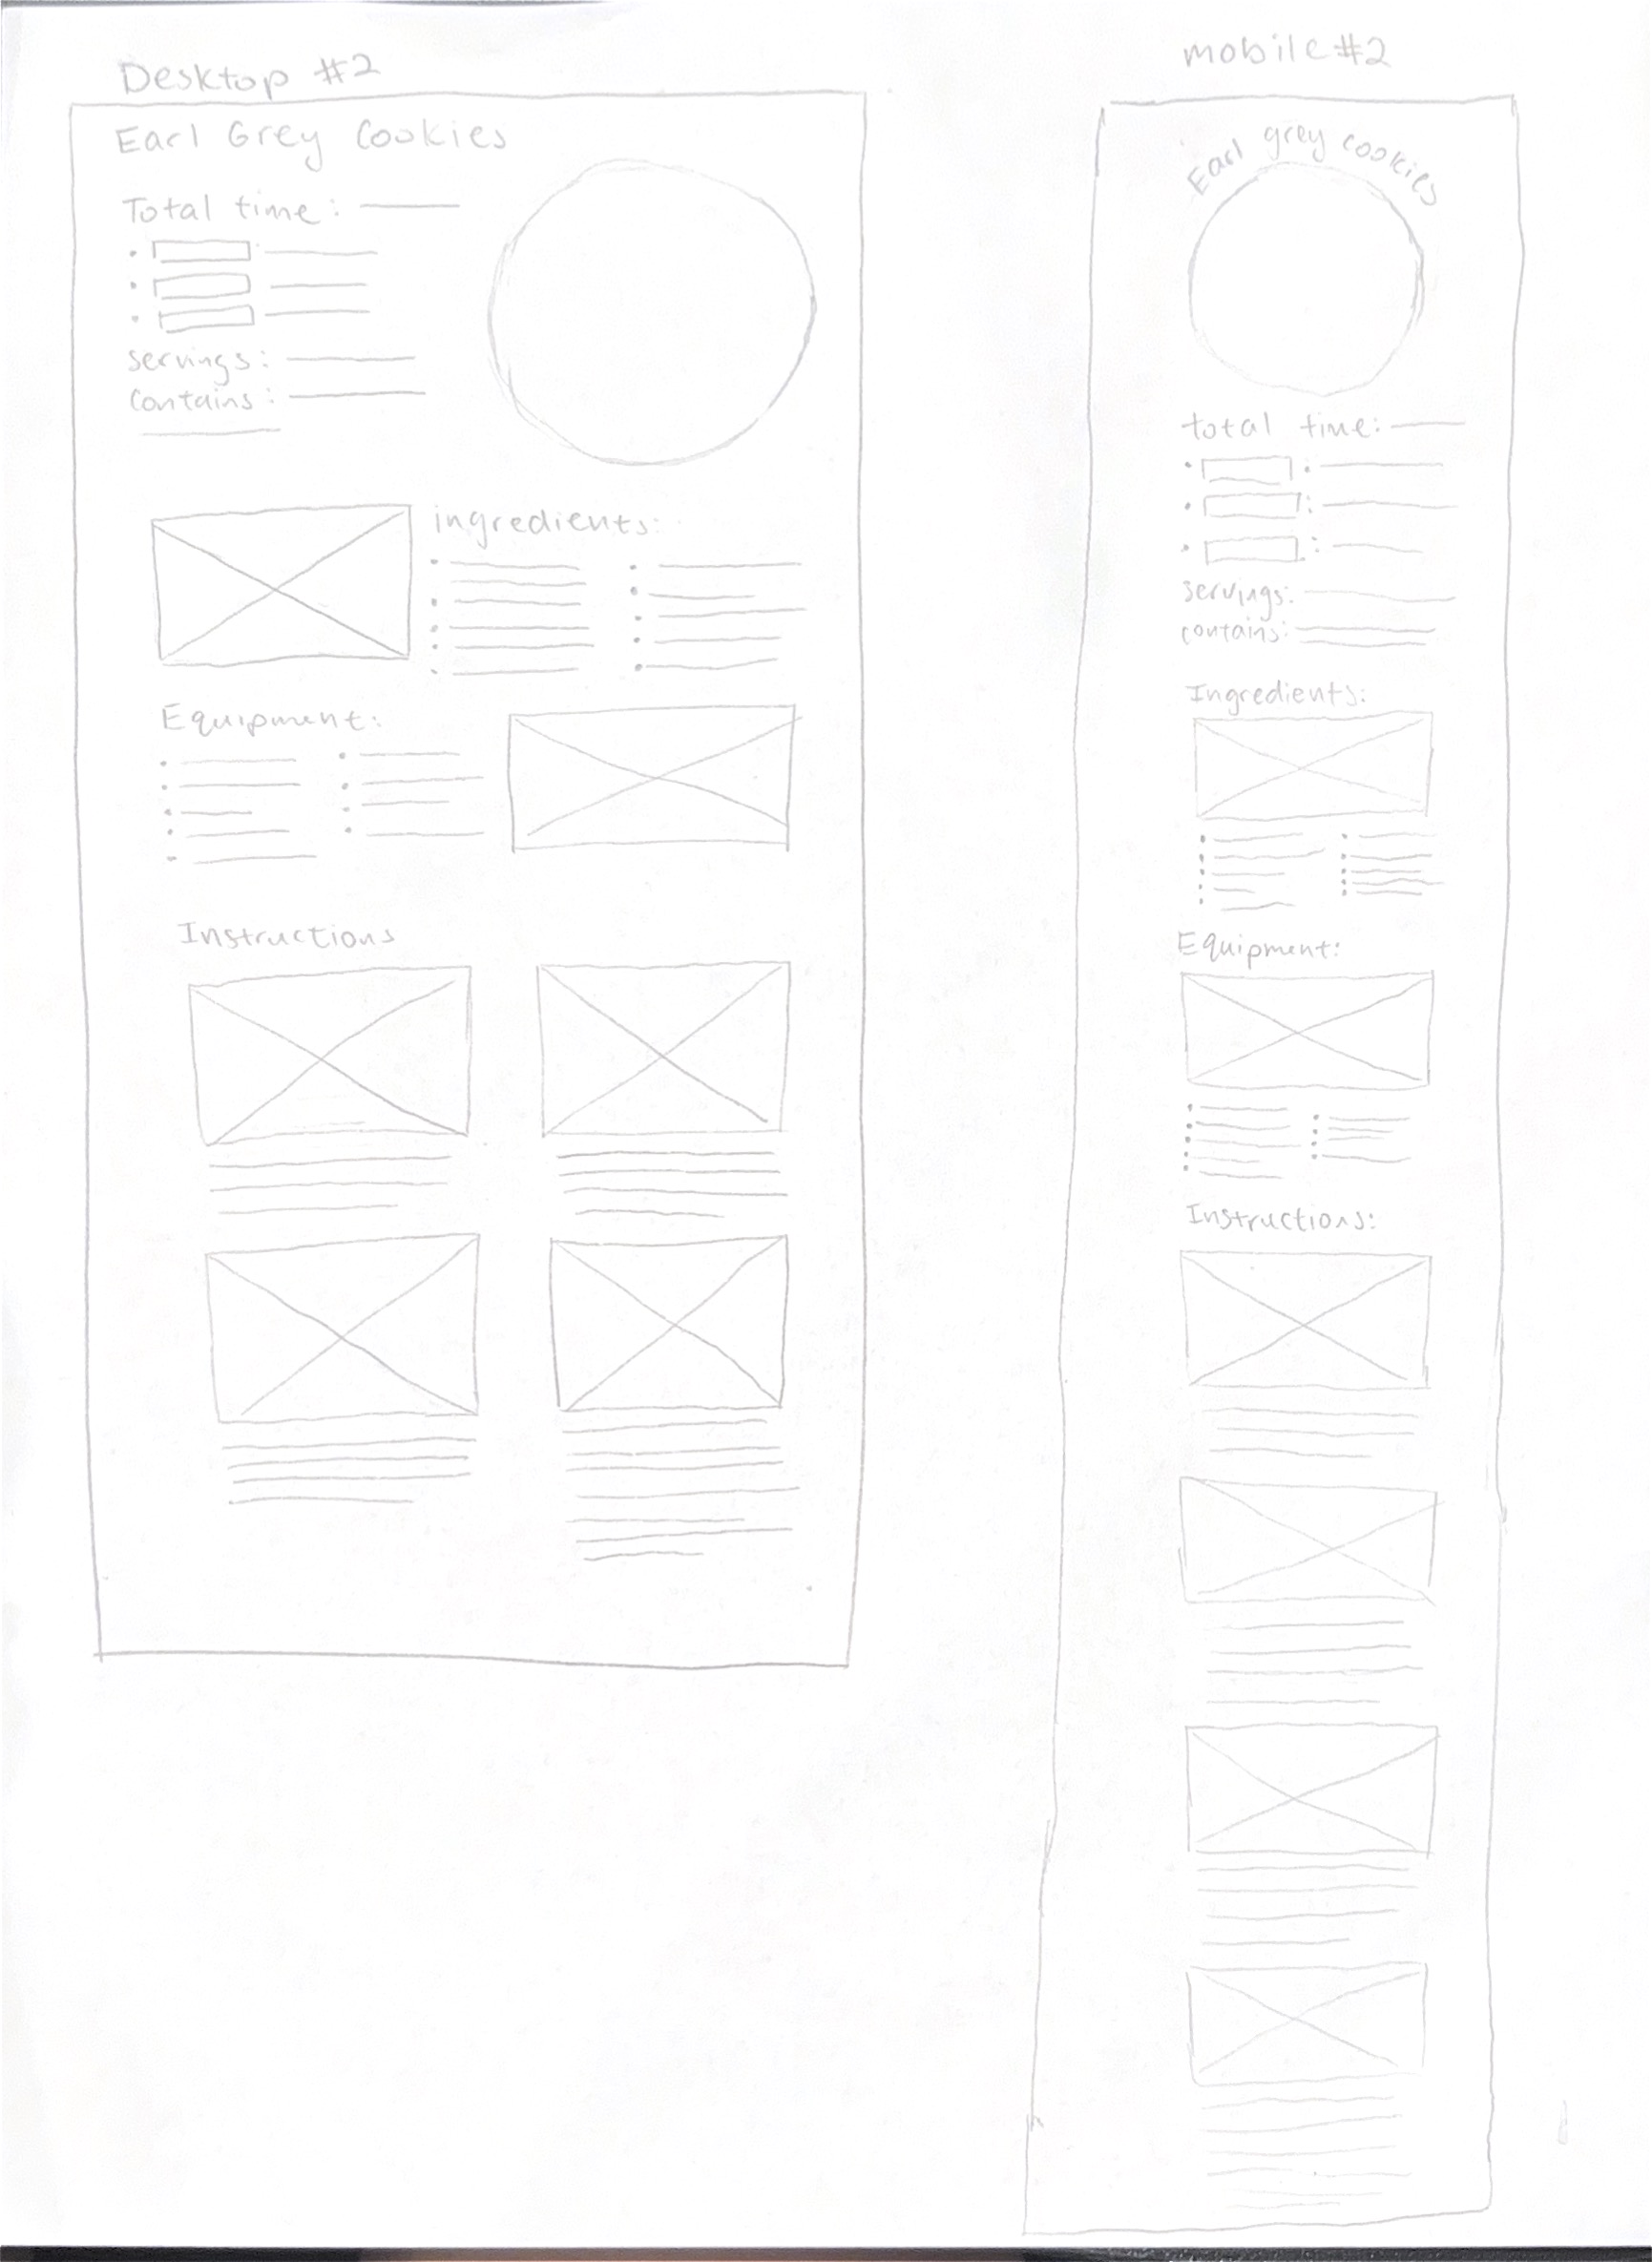 Desktop #2
Earl Grey Cookies
Total time:
servings:
Contains:
ingredients:
Equipment:
Instructions
mobile #2
Earl grey cookies
total time:
servings:
contains:
Ingredients:
Equipment:
Instructions: